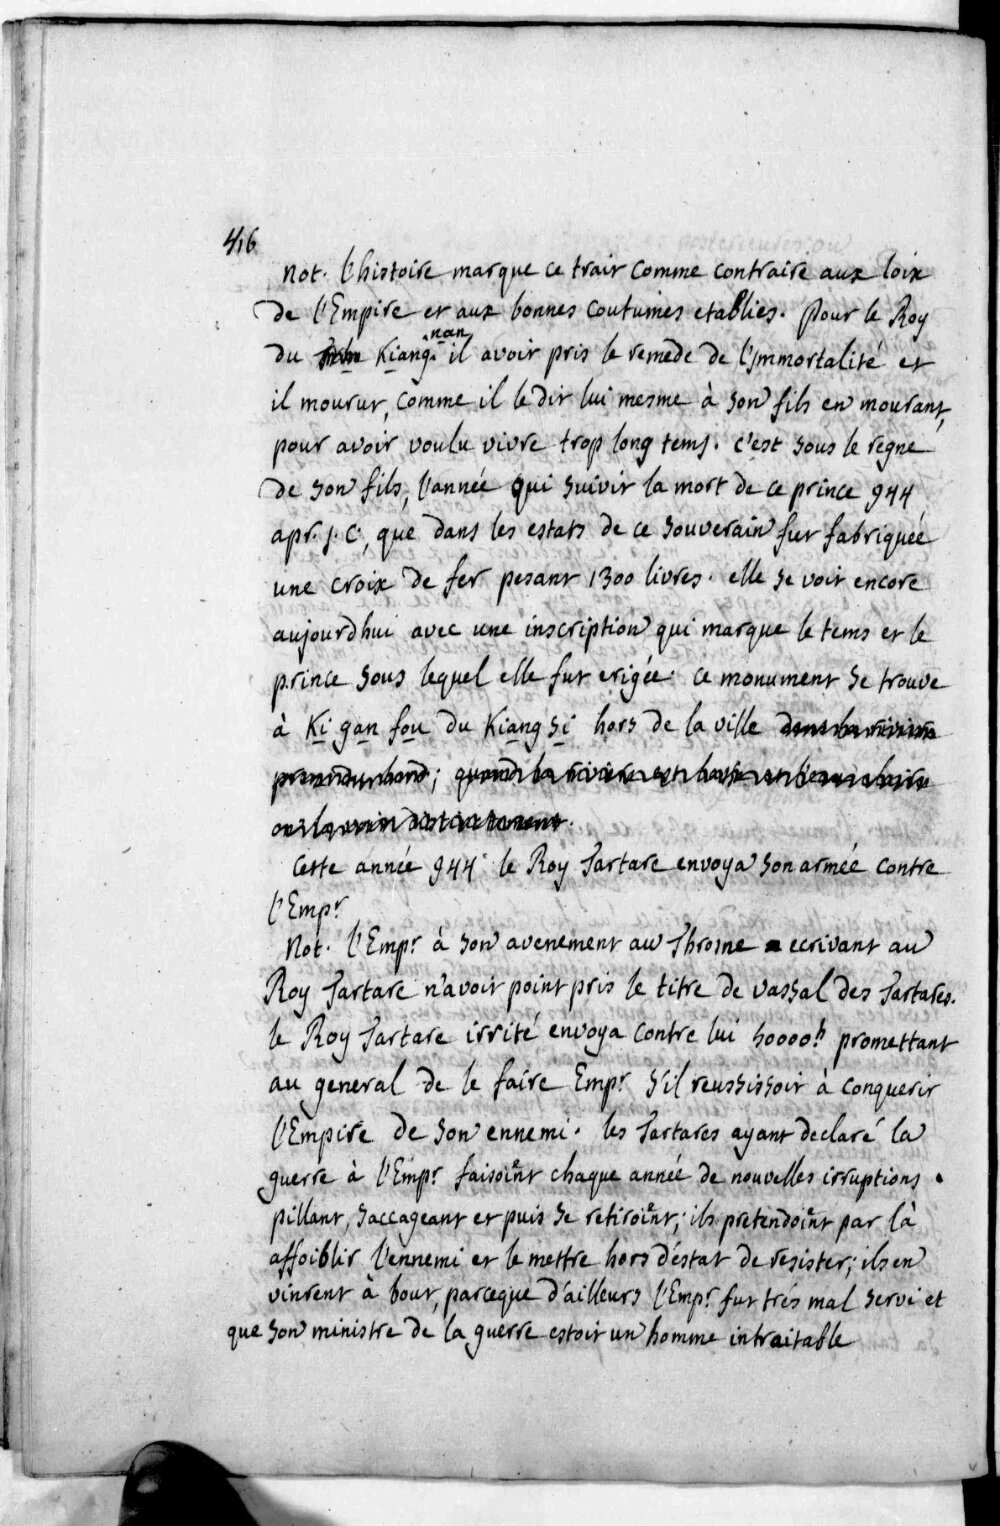 416
Not. l'histoire marque ce trait comme contraire aux loix
de l'Empire et aux bonnes coutumes etablies. Pour le Roy
du Kiang nan il avoit pris le remede de l'Immortalité et
il mourut, comme il le dit lui mesme à son fils en mourant,
pour avoir voulu vivre trop long tems. c'est sous le regne
de son fils, l'année qui suivit la mort de ce prince 944
apr. J. C., que dans les estats de ce souverain fut fabriquée
une croix de fer pesant 1300 livres. elle se voit encore
aujourdhui avec une inscription qui marque le tems et le
prince sous lequel elle fut erigée. ce monument se trouve
à Ki gan fou du Kiang si hors de la ville dans la riviere
; quand la riviere est basse et l'eau claire
on la voit distinctement.
Cette année 944. le Roy Tartare envoya son armée contre
l'Empr
Not. l'Empr à son avenement au Throsne ecrivant au
Roy Tartare n'avoit point pris le titre de vassal des Tartares.
le Roy Tartare irrité envoya contre lui 50000 h promettant
au general de le faire Empr s'il reussissoit à conquerir
l'Empire de son ennemi. les Tartares ayant declaré la
guerre à l'Empr faisoient chaque année de nouvelles irruptions.
pillant, saccageant et puis se retiroient; ils pretendoient par là
affoiblir l'ennemi et le mettre hors d'estat de resister; ils en
vinrent à bout, parceque d'ailleurs l'Empr fut trés mal servi et
que son ministre de la guerre estoit un homme intraitable